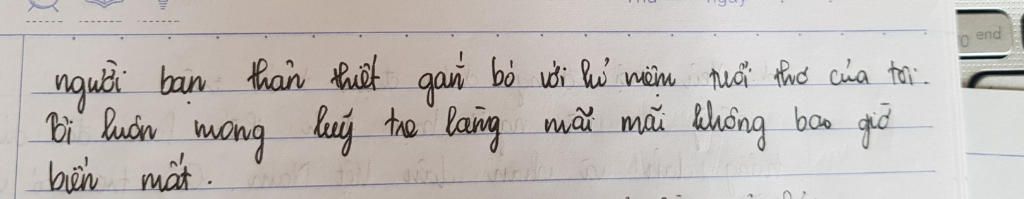 người bạn thân thiết gắn bó với kí niệm tuổi thơ của tôi.
Tôi luôn mong luỹ tre làng mãi mãi không bao giờ
biến mất.